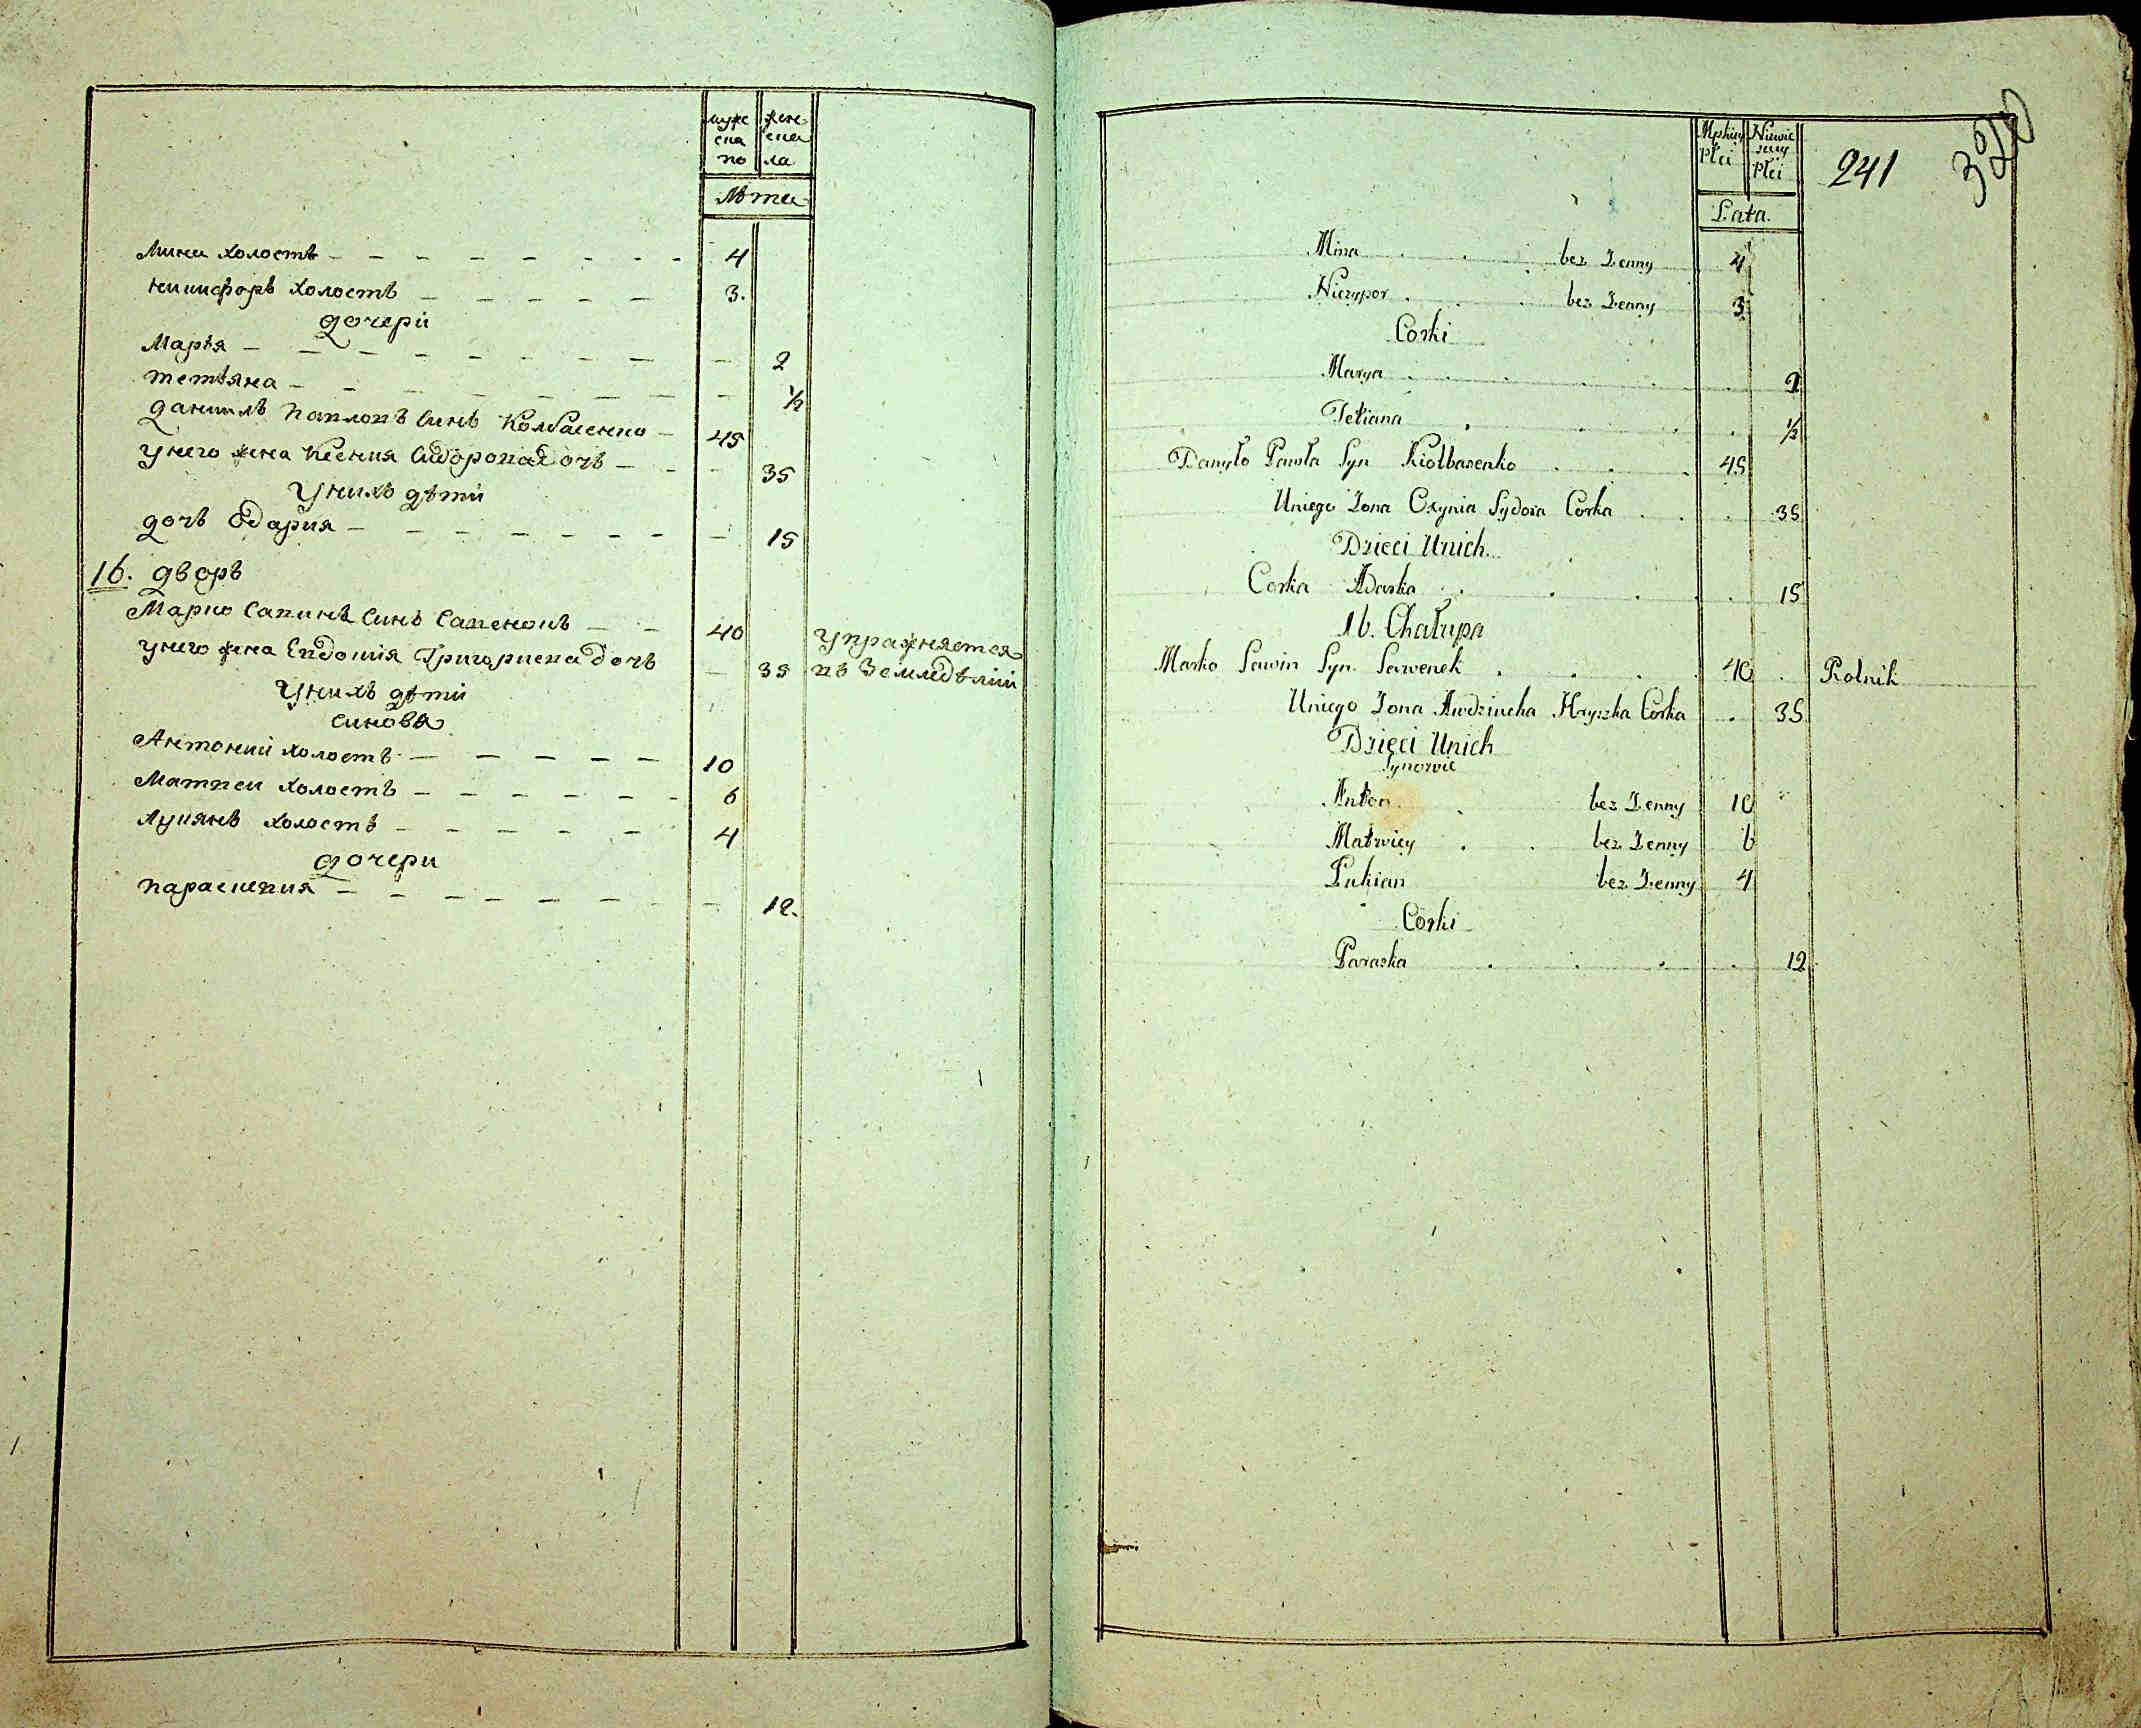 мужеска по
женска ла
Лѣта
Мина холостъ 4
никифоръ холостъ 3.
дочери
Марѣя 2
тетѣяна ½
данилъ павловъ синъ Колбасенко 45
унего жена Ксения Сидорова дочъ 35
Унихъ дѣти
дочъ Одария 15
16. дворъ
Марко Савинъ Синъ Савенокъ 40 упражняется
унего жена Евдокия Григориева дочъ 35 въ Земледѣлии
Унихъ дѣти
синовя
Антоний холостъ 10
Матвеи холостъ 6
Лукянъ холостъ 4
дочери
параскевия 12.
Męskiey Płci
Niewiesciey Płci
241
Lata.
Mina bez Zenny 4
Niczypor bez Zenny 3
Corki
Marya 2
Tetiana ½
Danyło Pawła Syn Kiołbasenko 45
Uniego Zona Oxynia Sydora Corka 35
Dzieci Unich
Corka Adarka 15
16. Chałupa
Marko Sawin Syn Sawenek 40 Rolnik
Uniego Zona Awdziucha Hryszka Corka 35
Dzieci Unich
Synowie
Anton bez Zenny 10
Matwiey bez Zenny 6
Łukian bez Zenny 4
Corki
Paraska 12